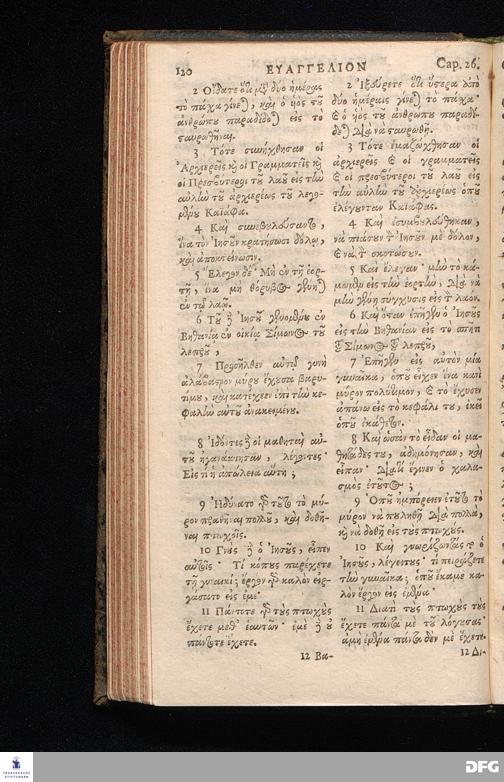 120 ΕΥΑΓΓΕΛΙΟΝ Cap. 26.
2 Οἴδατε ὅτι μετὰ δύο ἡμέρας
τὸ πάσχα γίνεται, καὶ ὁ υἱὸς τοῦ
ἀνθρώπου παραδίδοται εἰς τὸ
σταυρωθῆναι.
3 Τότε συνήχθησαν οἱ
Ἀρχιερεῖς καὶ οἱ Γραμματεῖς καὶ
οἱ Πρεσβύτεροι τοῦ λαοῦ εἰς τὴν
αὐλὴν τοῦ ἀρχιερέως τοῦ λεγο-
μένου Καϊάφα.
4 Καὶ συνεβουλεύσαντο,
ἵνα τὸν Ἰησοῦν κρατήσωσι δόλῳ,
καὶ ἀποκτείνωσιν.
5 Ἔλεγον δέ· Μὴ ἐν τῇ ἑορ-
τῇ, ἵνα μὴ θόρυβος γένηται
ἐν τῷ λαῷ.
6 Τοῦ δὲ Ἰησοῦ γενομένου ἐν
Βηθανίᾳ ἐν οἰκίᾳ Σίμωνος τοῦ
λεπροῦ,
7 Προσῆλθεν αὐτῷ γυνὴ
ἀλάβαστρον μύρου ἔχουσα βαρυ-
τίμου, καὶ κατέχεεν ἐπὶ τὴν κε-
φαλὴν αὐτοῦ ἀνακειμένου.
8 Ἰδόντες δὲ οἱ μαθηταὶ αὐ-
τοῦ ἠγανάκτησαν, λέγοντες·
Εἰς τί ἡ ἀπώλεια αὕτη;
9 Ἠδύνατο γὰρ τοῦτο τὸ μύ-
ρον πραθῆναι πολλοῦ, καὶ δοθῆ-
ναι πτωχοῖς.
10 Γνοὺς δὲ ὁ Ἰησοῦς, εἶπεν
αὐτοῖς· Τί κόπους παρέχετε
τῇ γυναικί; ἔργον γὰρ καλὸν εἰρ-
γάσατο εἰς ἐμέ·
11 Πάντοτε γὰρ τοὺς πτωχοὺς
ἔχετε μεθ' ἑαυτῶν· ἐμὲ δὲ οὐ
πάντοτε ἔχετε.
12 Βα-
2 Ἠξεύρετε ὅτι ὕστερα ἀπὸ
δύο ἡμέραις γίνεται τὸ πάσχα·
καὶ ὁ υἱὸς τοῦ ἀνθρώπου παραδί-
δεται διὰ νὰ σταυρωθῇ.
3 Τότε ἐμαζώχθησαν οἱ
ἀρχιερεῖς καὶ οἱ γραμματεῖς
καὶ οἱ πρεσβύτεροι τοῦ λαοῦ εἰς
τὴν αὐλὴν τοῦ ἀρχιερέως ὁποῦ
ἐλέγονταν Καϊάφας.
4 Καὶ ἐσυμβουλεύθηκαν,
νὰ πιάσουν τὸν Ἰησοῦν μὲ δόλον,
καὶ νὰ τὸν σκοτώσουν.
5 Καὶ ἔλεγαν· μὴν τὸ κά-
μωμεν εἰς τὴν ἑορτὴν, διὰ νὰ
μὴν γένῃ σύγχυσις εἰς τὸν λαόν.
6 Καὶ ὅταν ἐπῆγεν ὁ Ἰησοῦς
εἰς τὴν Βηθανίαν εἰς τὸ σπήτι
τοῦ Σίμωνος τοῦ λεπροῦ,
7 Ἐπῆγεν εἰς αὐτὸν μία
γυναῖκα, ὁποῦ εἶχεν ἕνα κανὶ
μύρον πολύτιμον, καὶ τὸ ἔχυσεν
ἀπάνω εἰς τὸ κεφάλι του, ἐκεῖ
ὁποῦ ἐκάθετον.
8 Καὶ ὡσὰν τὸ εἶδαν οἱ μα-
θητάδες του, ἀδημόνησαν, καὶ
εἶπαν· Διατί ἔγινεν ὁ χαλα-
σμὸς ἐτοῦτος;
9 Ὁποῦ ἠμπόρειεν ἐτοῦτο τὸ
μύρον νὰ πουληθῇ διὰ πολλὰ,
καὶ νὰ δοθῇ εἰς τοὺς πτωχούς.
10 Καὶ γνωρίζωντάς το ὁ
Ἰησοῦς, λέγει τους· τί πειράζετε
τὴν γυναῖκα; ὁποῦ ἔκαμε κα-
λὸν ἔργον εἰς ἐμένα·
11 Διατὶ τοὺς πτωχοὺς τοὺς
ἔχετε πάντα μὲ τοῦ λόγου σας·
ἀμὴ ἐμένα πάντα δὲν μὲ ἔχετε.
12 Δι-
DFG